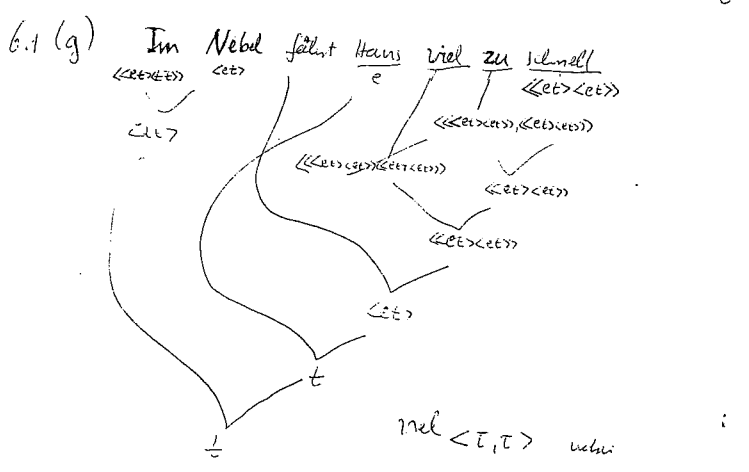 6.1 (g) Im Nebel fährt Hans viel zu schnell
<<et><tt>> <et> e <<et><et>>
<tt> <<<et><et>>,<<et><et>>>
<<<et><et>><<et><et>>> <<et><et>>
<<et><et>>
<et>
t
t
<τ,τ>